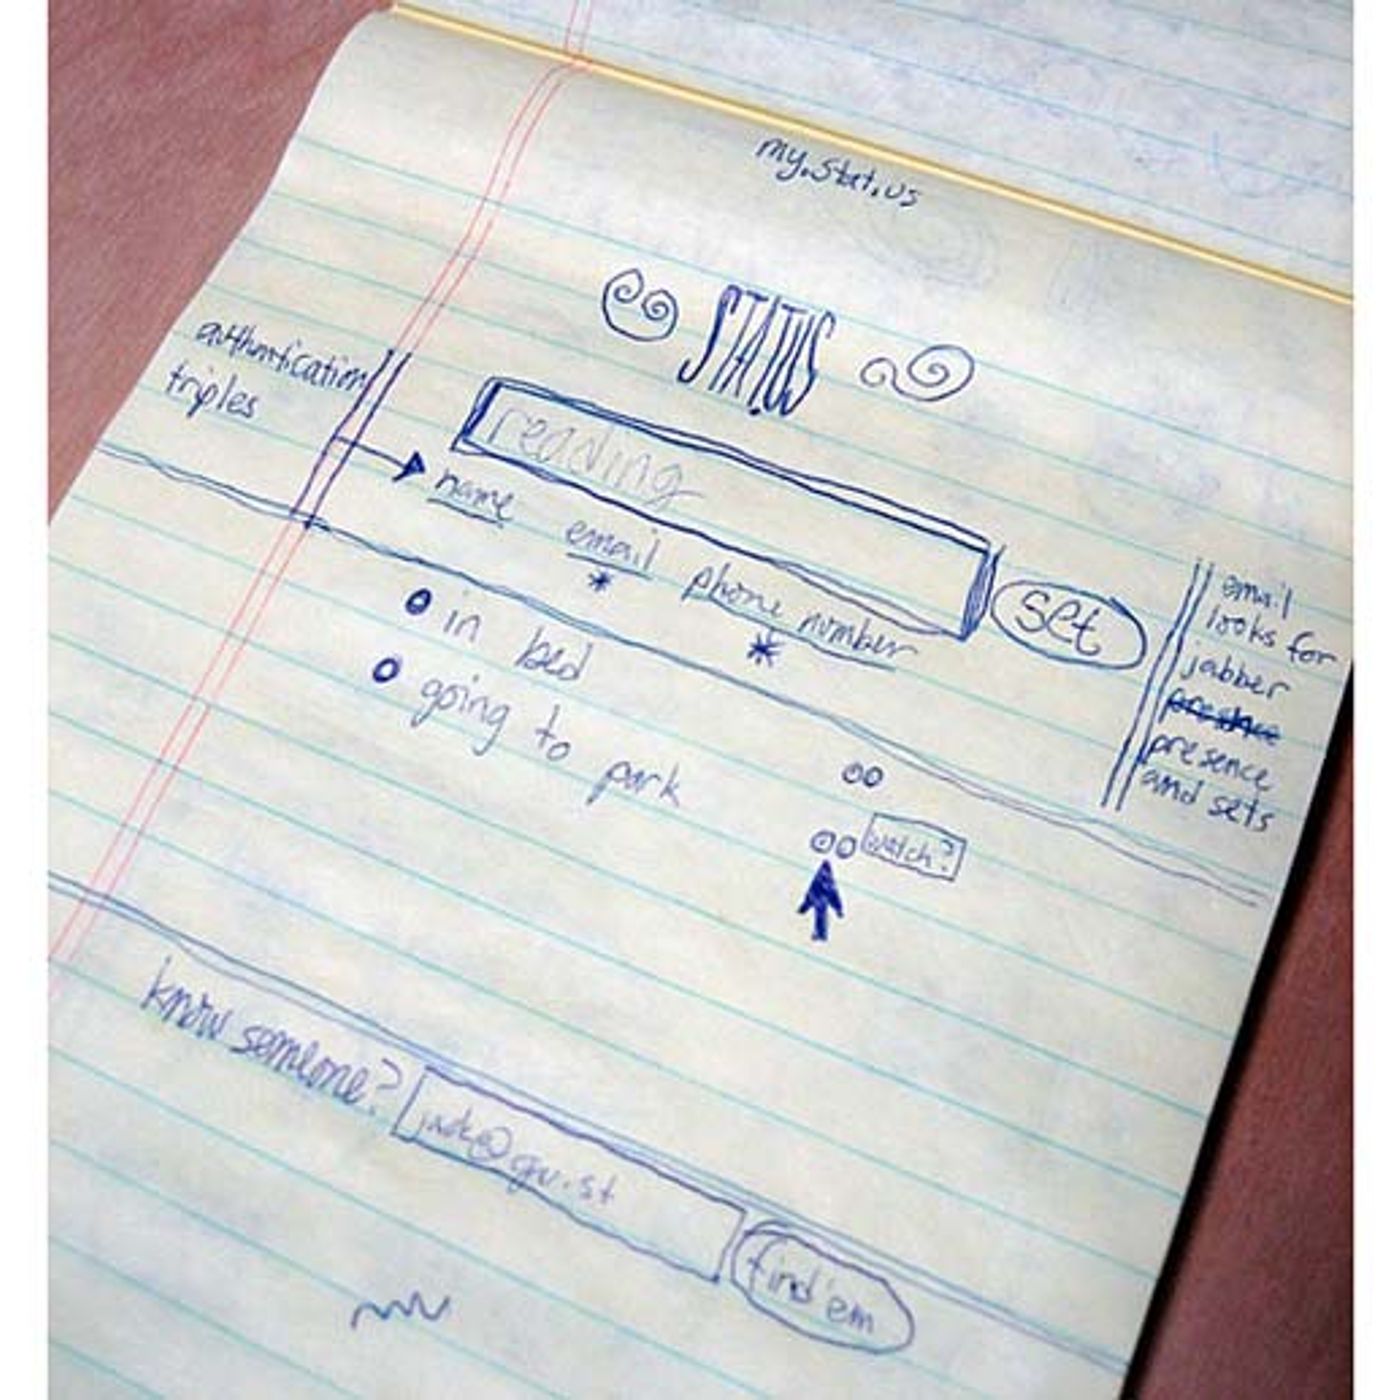 my.stat.us
STAT.US
authentication
triples
reading
name email phone number
set
email
looks for
jabber
presence
and sets
in bed
going to park
watch?
know someone?
find 'em